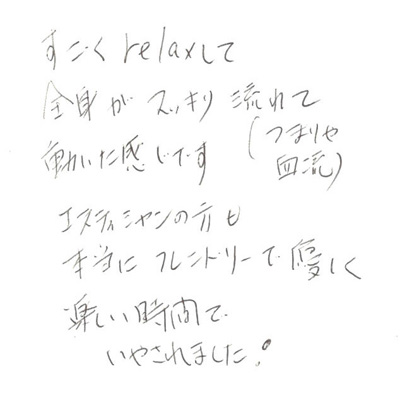 すごくrelaxして
全身がスッキリ流れて
(つまりや
血流)
動いた感じです
エスティシャンの方も
本当にフレンドリーで優しく
楽しい時間で
いやされました!